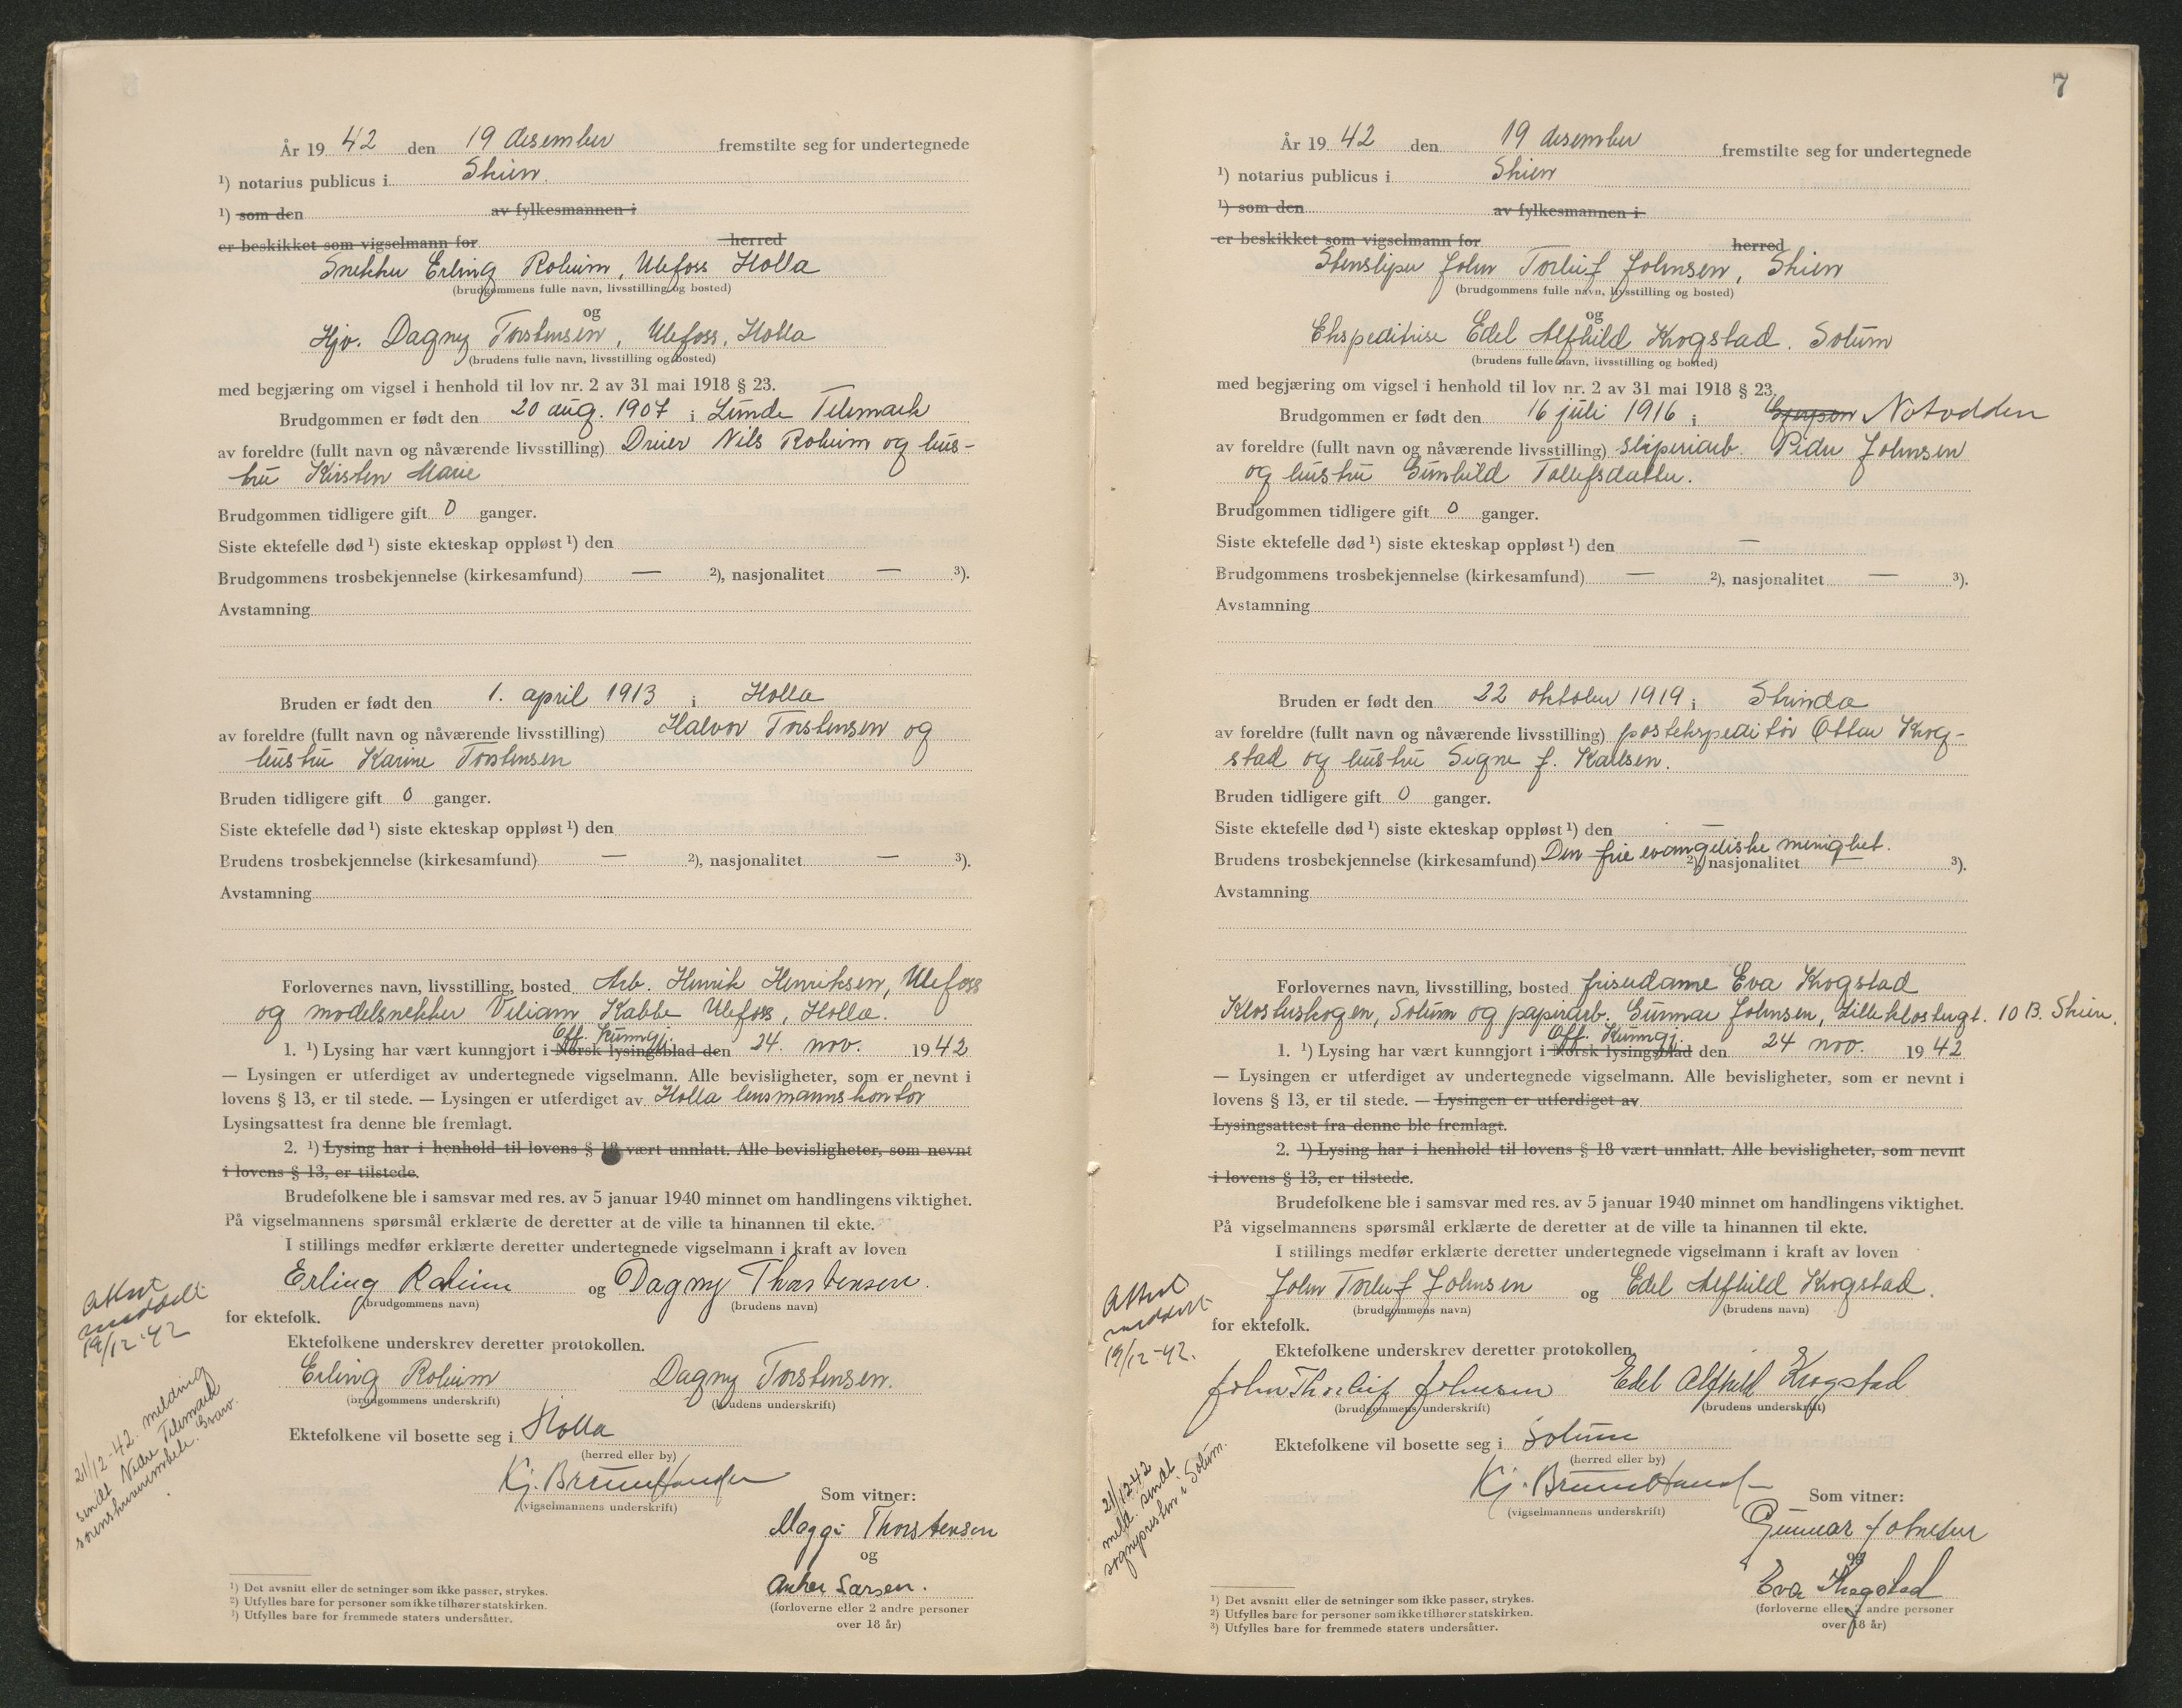 År 19 42 den 19 desember fremstilte seg for undertegnede
¹) notarius publicus i Skien.
¹) som den av fylkesmannen i
er beskikket som vigselmann for herred
Snekker Erling Roheim, Ulefoss Holla
(brudgommens fulle navn, livsstilling og bosted)
og
Hjv. Dagny Torstensen, Ulefoss, Holla
(brudens fulle navn, livsstilling og bosted)
med begjæring om vigsel i henhold til lov nr. 2 av 31 mai 1918 § 23.
Brudgommen er født den 20 aug. 1907 i Lunde Telemark
av foreldre (fullt navn og nåværende livsstilling) Driver Nils Roheim og hus-
tru Kirsten Marie
Brudgommen tidligere gift 0 ganger.
Siste ektefelle død ¹) siste ekteskap oppløst ¹) den
Brudgommens trosbekjennelse (kirkesamfund) — ²), nasjonalitet — ³).
Avstamning
Bruden er født den 1. april 1913 i Holla
av foreldre (fullt navn og nåværende livsstilling) Halvor Torstensen og
hustru Karine Torstensen
Bruden tidligere gift 0 ganger.
Siste ektefelle død ¹) siste ekteskap oppløst ¹) den
Brudens trosbekjennelse (kirkesamfund) — ²), nasjonalitet — ³).
Avstamning
Forlovernes navn, livsstilling, bosted Arb. Henrik Henriksen, Ulefoss
og modelsnekker Viliam Kabbe Ulefoss, Holla.
Off. Kunngj.
1. ¹) Lysing har vært kunngjort i Norsk lysingsblad den 24. nov. 1942
— Lysingen er utferdiget av undertegnede vigselmann. Alle bevisligheter, som er nevnt i
lovens § 13, er til stede. — Lysingen er utferdiget av Holla lensmannskontor
Lysingsattest fra denne ble fremlagt.
2. ¹) Lysing har i henhold til lovens § 18 vært unnlatt. Alle bevisligheter, som nevnt
i lovens § 13, er tilstede.
Brudefolkene ble i samsvar med res. av 5 januar 1940 minnet om handlingens viktighet.
På vigselmannens spørsmål erklærte de deretter at de ville ta hinannen til ekte.
I stillings medfør erklærte deretter undertegnede vigselmann i kraft av loven
Erling Roheim og Dagny Thorstensen.
(brudgommens navn) (brudens navn)
for ektefolk.
Attest
meddelt
19/12-42
Ektefolkene underskrev deretter protokollen.
Erling Roheim Dagny Torstensen.
(brudgommens underskrift) (brudens underskrift)
Ektefolkene vil bosette seg i Holla
(herred eller by)
21/12-42. melding
sendt Nedre Telemark
sorenskriverembede. Gvarv.
Kj.
(vigselmannens underskrift)
Som vitner:
Maggi Thorstensen
og
Anker Larsen.
(forloverne eller 2 andre personer
over 18 år)
¹) Det avsnitt eller de setninger som ikke passer, strykes.
²) Utfylles bare for personer som ikke tilhører statskirken.
³) Utfylles bare for fremmede staters undersåtter.
7
År 19 42 den 19 desember fremstilte seg for undertegnede
¹) notarius publicus i Skien
¹) som den av fylkesmannen i
er beskikket som vigselmann for herred
Stensliper John Torleif Johnsen, Skien
(brudgommens fulle navn, livsstilling og bosted)
og
Ekspeditrise Edel Alfhild Krogstad. Solum
(brudens fulle navn, livsstilling og bosted)
med begjæring om vigsel i henhold til lov nr. 2 av 31 mai 1918 § 23.
Brudgommen er født den 16 juli 1916 i Notodden
av foreldre (fullt navn og nåværende livsstilling) sliperiarb. Peder Johnsen
og hustru Gunhild Tollefsdatter.
Brudgommen tidligere gift 0 ganger.
Siste ektefelle død ¹) siste ekteskap oppløst ¹) den —
Brudgommens trosbekjennelse (kirkesamfund) — ²), nasjonalitet — ³).
Avstamning
Bruden er født den 22 oktober 1919 i Strinda
av foreldre (fullt navn og nåværende livsstilling) postekspeditør Ottar Krog-
stad og hustru Signe f. Karlsen.
Bruden tidligere gift 0 ganger.
Siste ektefelle død ¹) siste ekteskap oppløst ¹) den —
Brudens trosbekjennelse (kirkesamfund) Den frie evangeliske menighet. ²), nasjonalitet ³).
Avstamning
Forlovernes navn, livsstilling, bosted frisedame Eva Krogstad
Klosterskogen, Solum og papirarb. Gunnar Johnsen, Lille klostergt. 10 B. Skien.
Off. Kunngj.
1. ¹) Lysing har vært kunngjort i Norsk lysingsblad den 24 nov. 1942
— Lysingen er utferdiget av undertegnede vigselmann. Alle bevisligheter, som er nevnt i
lovens § 13, er til stede. — Lysingen er utferdiget av
Lysingsattest fra denne ble fremlagt.
2. ¹) Lysing har i henhold til lovens § 18 vært unnlatt. Alle bevisligheter, som nevnt
i lovens § 13, er tilstede.
Brudefolkene ble i samsvar med res. av 5 januar 1940 minnet om handlingens viktighet.
På vigselmannens spørsmål erklærte de deretter at de ville ta hinannen til ekte.
I stillings medfør erklærte deretter undertegnede vigselmann i kraft av loven
John Torleif Johnsen og Edel Alfhild Krogstad.
(brudgommens navn) (brudens navn)
for ektefolk.
Attest
meddelt
19/12-42.
Ektefolkene underskrev deretter protokollen.
John Thorleif Johnsen Edel Alfhild Krogstad
(brudgommens underskrift) (brudens underskrift)
Ektefolkene vil bosette seg i Solum
(herred eller by)
21/12-42
meld. sendt
sognepresten i Solum.
Kj.
(vigselmannens underskrift)
Som vitner:
Gunnar Johnsen
og
Eva Krogstad
(forloverne eller 2 andre personer
over 18 år)
¹) Det avsnitt eller de setninger som ikke passer, strykes.
²) Utfylles bare for personer som ikke tilhører statskirken.
³) Utfylles bare for fremmede staters undersåtter.